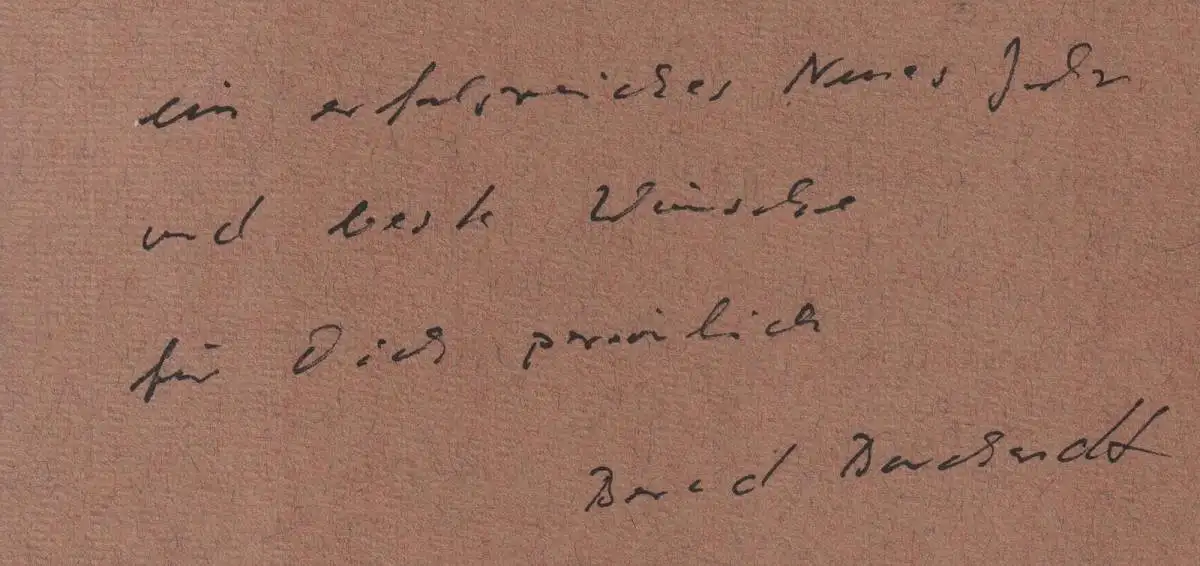 ein erfolgreiches Neues Jahr
und beste Wünsche
für Dich persönlich
Bernd Borchardt